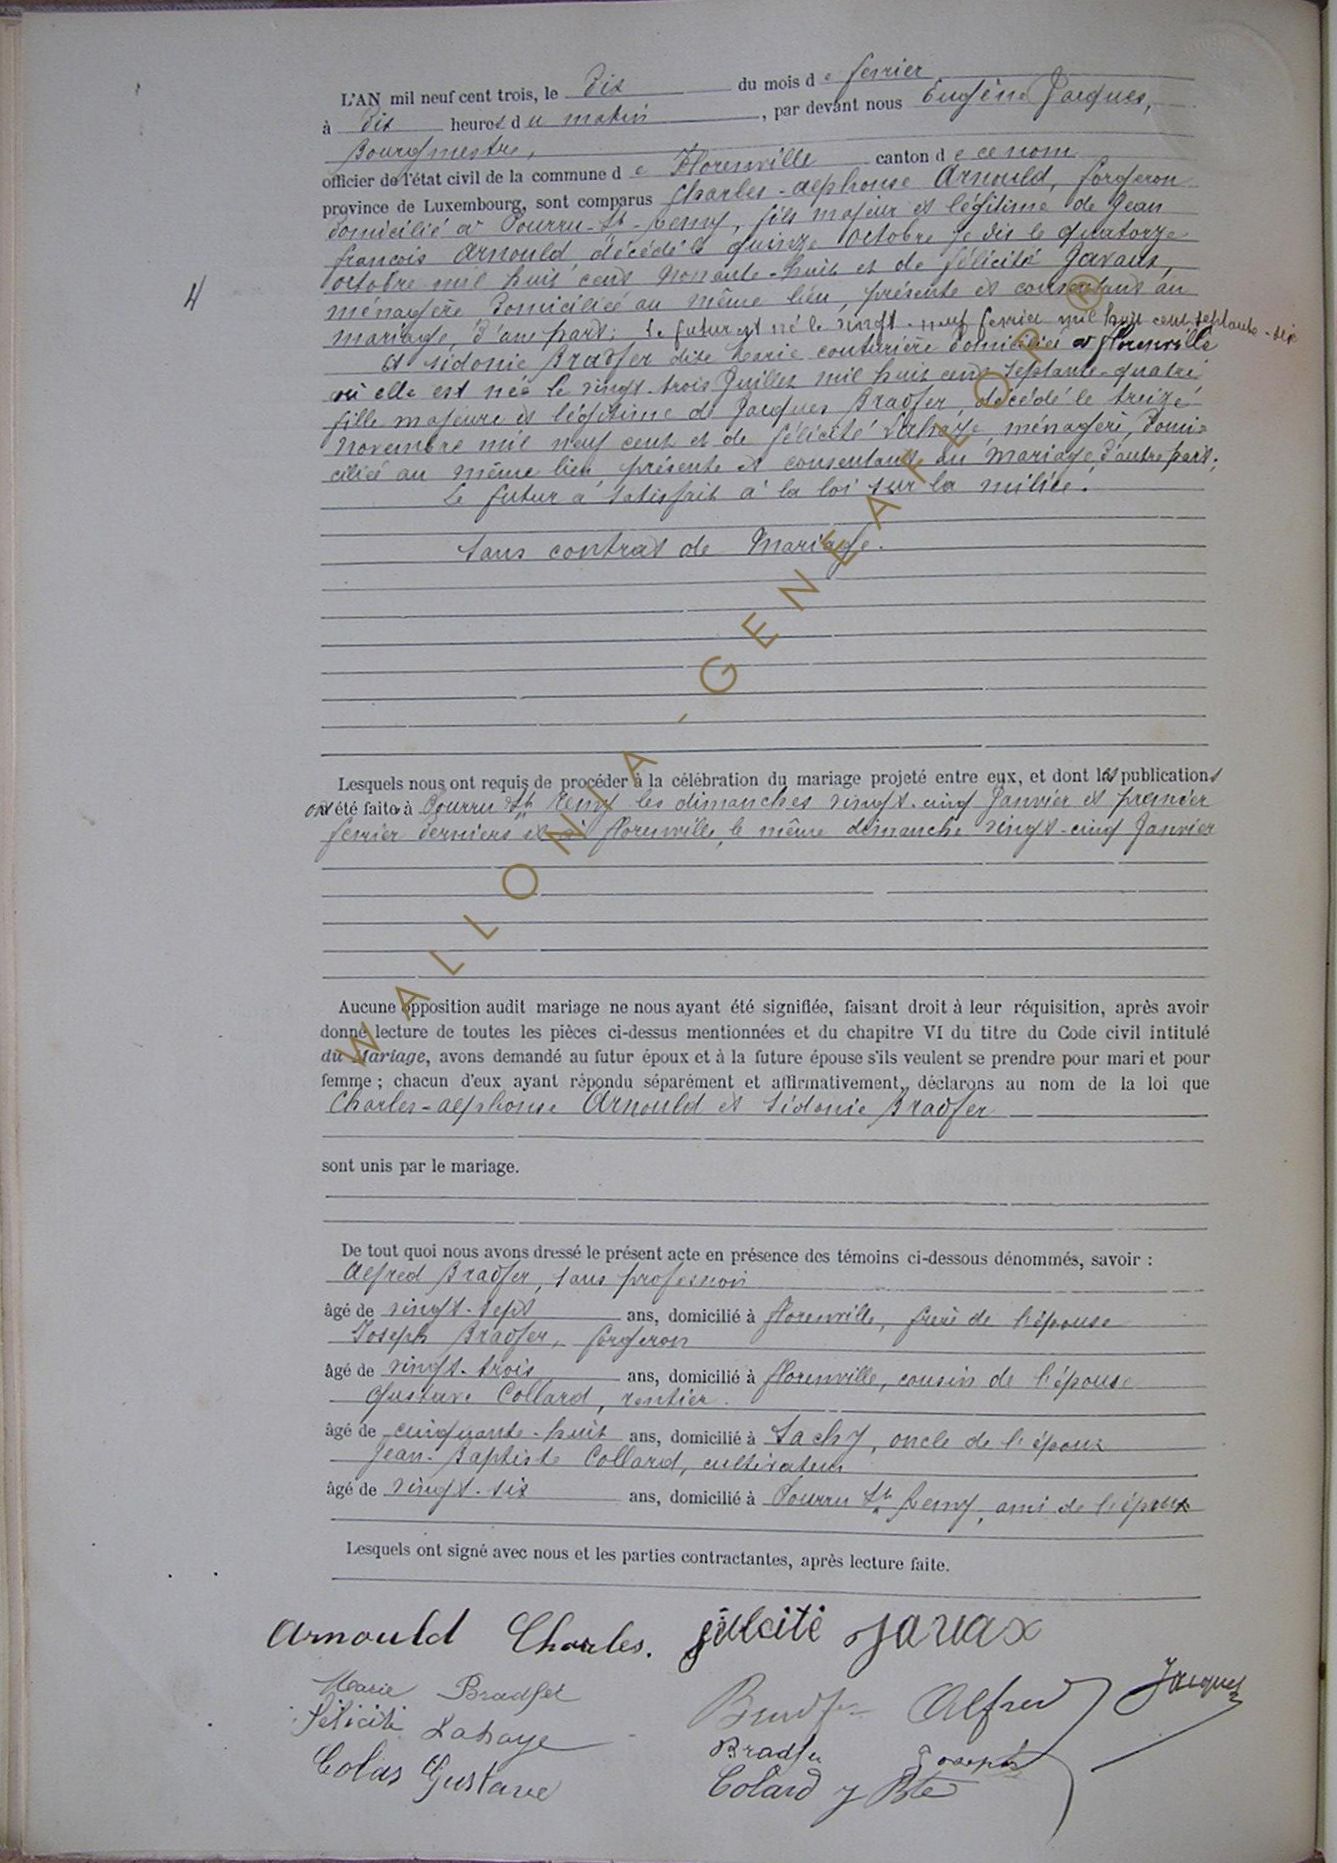 L'AN mil neuf cent trois, le dix du mois de février
à dix heures du matin, par devant nous Eugène Jacques,
Bourgmestre,
officier de l'état civil de la commune de Florenville canton de ce nom
province de Luxembourg, sont comparus Charles-Alphonse Arnould, forgeron
domicilié à Pourru-St-Remy, fils majeur et légitime de Jean
françois Arnould décédé le quinze octobre je dis le quatorze
octobre mil huit cent nonante-huit et de félicité Javaux,
ménagère domiciliée au même lieu, présente et consentant au
mariage, d'une part; Le futur est né le vingt-neuf février mil huit cent septante-six
Et Sidonie Bradfer dite Marie couturière domiciliée à florenville
où elle est née le vingt-trois Juillet mil huit cent septante-quatre
fille majeure et légitime de Jacques Bradfer, décédé le treize
novembre mil neuf cent et de félicité Lahaye, ménagère, domi-
ciliée au même lieu présente et consentant au mariage, d'autre part;
Le futur a satisfait à la loi sur la milice.
Sans contrat de Mariage.
Lesquels nous ont requis de procéder à la célébration du mariage projeté entre eux, et dont les publications
ont été faites à Pourru St Remy les dimanches vingt-cinq Janvier et premier
février derniers et à florenville, le même dimanche vingt-cinq Janvier
Aucune opposition audit mariage ne nous ayant été signifiée, faisant droit à leur réquisition, après avoir
donné lecture de toutes les pièces ci-dessus mentionnées et du chapitre VI du titre du Code civil intitulé
du Mariage, avons demandé au futur époux et à la future épouse s'ils veulent se prendre pour mari et pour
femme ; chacun d'eux ayant répondu séparément et affirmativement, déclarons au nom de la loi que
Charles-Alphonse Arnould et Sidonie Bradfer
sont unis par le mariage.
De tout quoi nous avons dressé le présent acte en présence des témoins ci-dessous dénommés, savoir :
Alfred Bradfer, sans profession
âgé de vingt-sept ans, domicilié à florenville, frère de l'épouse
Joseph Bradfer, forgeron
âgé de vingt-trois ans, domicilié à florenville, cousin de l'épouse
Gustave Collard, rentier.
âgé de cinquante-huit ans, domicilié à Sachy, oncle de l'époux
Jean-Baptiste Collard, cultivateur
âgé de vingt-six ans, domicilié à Pourru St Remy, ami de l'époux
Lesquels ont signé avec nous et les parties contractantes, après lecture faite.
4
Arnould Charles. félicité Javax
Marie Bradfer Bradfer Alfred Jacques
Félicité Lahaye Bradfer Joseph
Colas Gustave Colard J Bte
WALLONIA-GENEAFLOR ®